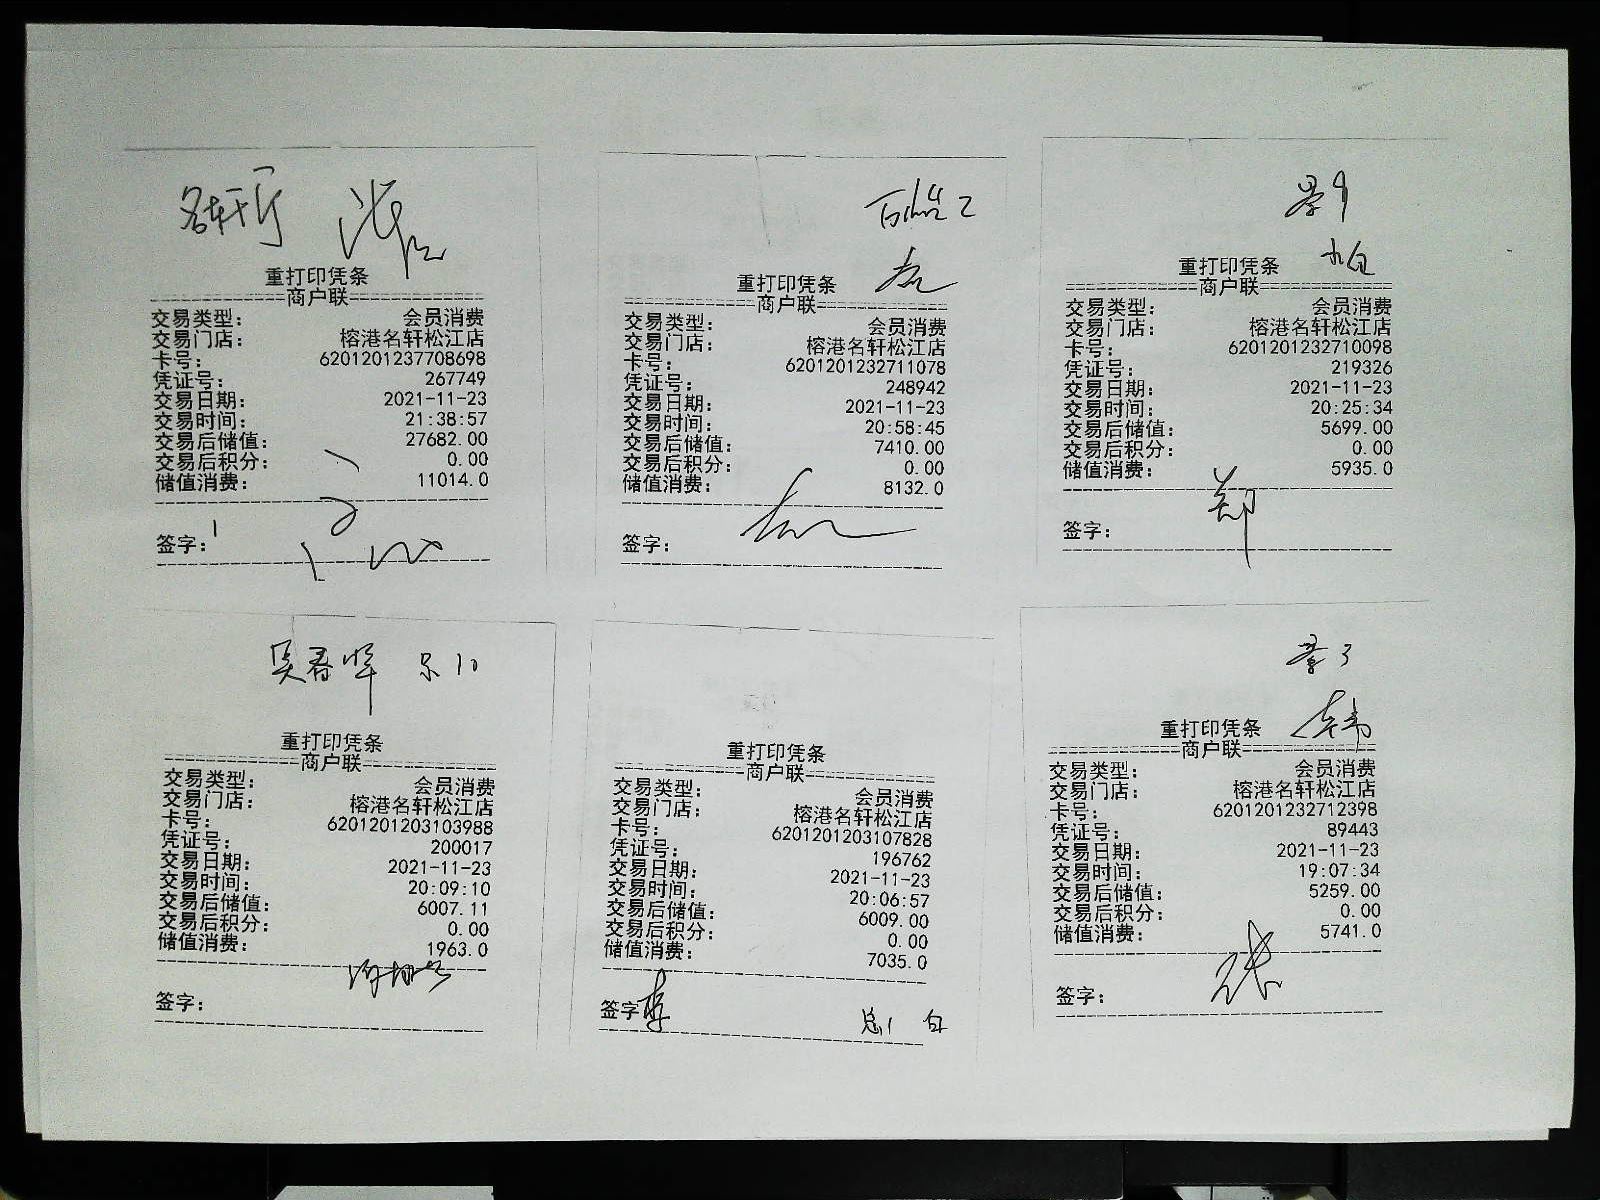 名轩厅
重打印凭条
==============商户联==============
交易类型: 会员消费
交易门店: 榕港名轩松江店
卡号: 6201201237708698
凭证号: 267749
交易日期: 2021-11-23
交易时间: 21:38:57
交易后储值: 27682.00
交易后积分: 0.00
储值消费: 11014.0
签字:
重打印凭条
==============商户联==============
交易类型: 会员消费
交易门店: 榕港名轩松江店
卡号: 6201201232711078
凭证号: 248942
交易日期: 2021-11-23
交易时间: 20:58:45
交易后储值: 7410.00
交易后积分: 0.00
储值消费: 8132.0
签字:
重打印凭条
==============商户联==============
交易类型: 会员消费
交易门店: 榕港名轩松江店
卡号: 6201201232710098
凭证号: 219326
交易日期: 2021-11-23
交易时间: 20:25:34
交易后储值: 5699.00
交易后积分: 0.00
储值消费: 5935.0
郑
签字:
吴春华
重打印凭条
==============商户联==============
交易类型: 会员消费
交易门店: 榕港名轩松江店
卡号: 6201201203103988
凭证号: 200017
交易日期: 2021-11-23
交易时间: 20:09:10
交易后储值: 6007.11
交易后积分: 0.00
储值消费: 1963.0
签字:
重打印凭条
==============商户联==============
交易类型: 会员消费
交易门店: 榕港名轩松江店
卡号: 6201201203107828
凭证号: 196762
交易日期: 2021-11-23
交易时间: 20:06:57
交易后储值: 6009.00
交易后积分: 0.00
储值消费: 7035.0
签字 李
重打印凭条
==============商户联==============
交易类型: 会员消费
交易门店: 榕港名轩松江店
卡号: 6201201232712398
凭证号: 89443
交易日期: 2021-11-23
交易时间: 19:07:34
交易后储值: 5259.00
交易后积分: 0.00
储值消费: 5741.0
张
签字: